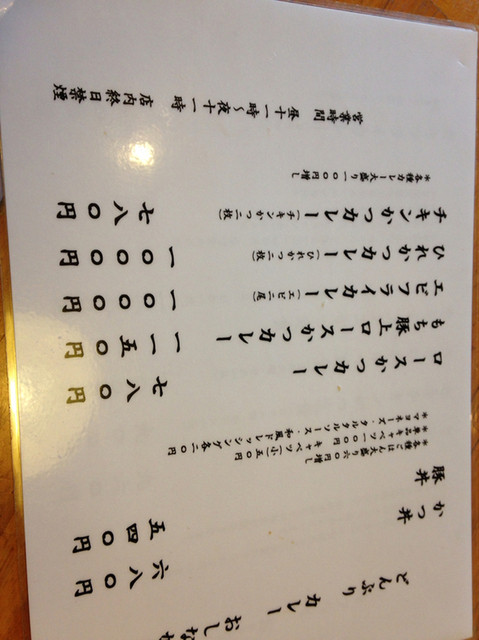 どんぶり　カレー　おしな
かつ丼　六八〇円
豚丼　五四〇円
＊各種ごはん大盛り六〇円増し
＊単品キャベツ一〇〇円　キャベツ(小)五〇円
＊マヨネーズ・タルタルソース・和風ドレッシング各二〇円
ロースかつカレー　七八〇円
もち豚上ロースかつカレー　一一五〇円
エビフライカレー(エビ二尾)　一〇〇〇円
ひれかつカレー(ひれかつ二枚)　一〇〇〇円
チキンかつカレー(チキンかつ二枚)　七八〇円
＊各種カレー大盛り一〇〇円増し
営業時間　昼十一時～夜十一時　店内終日禁煙